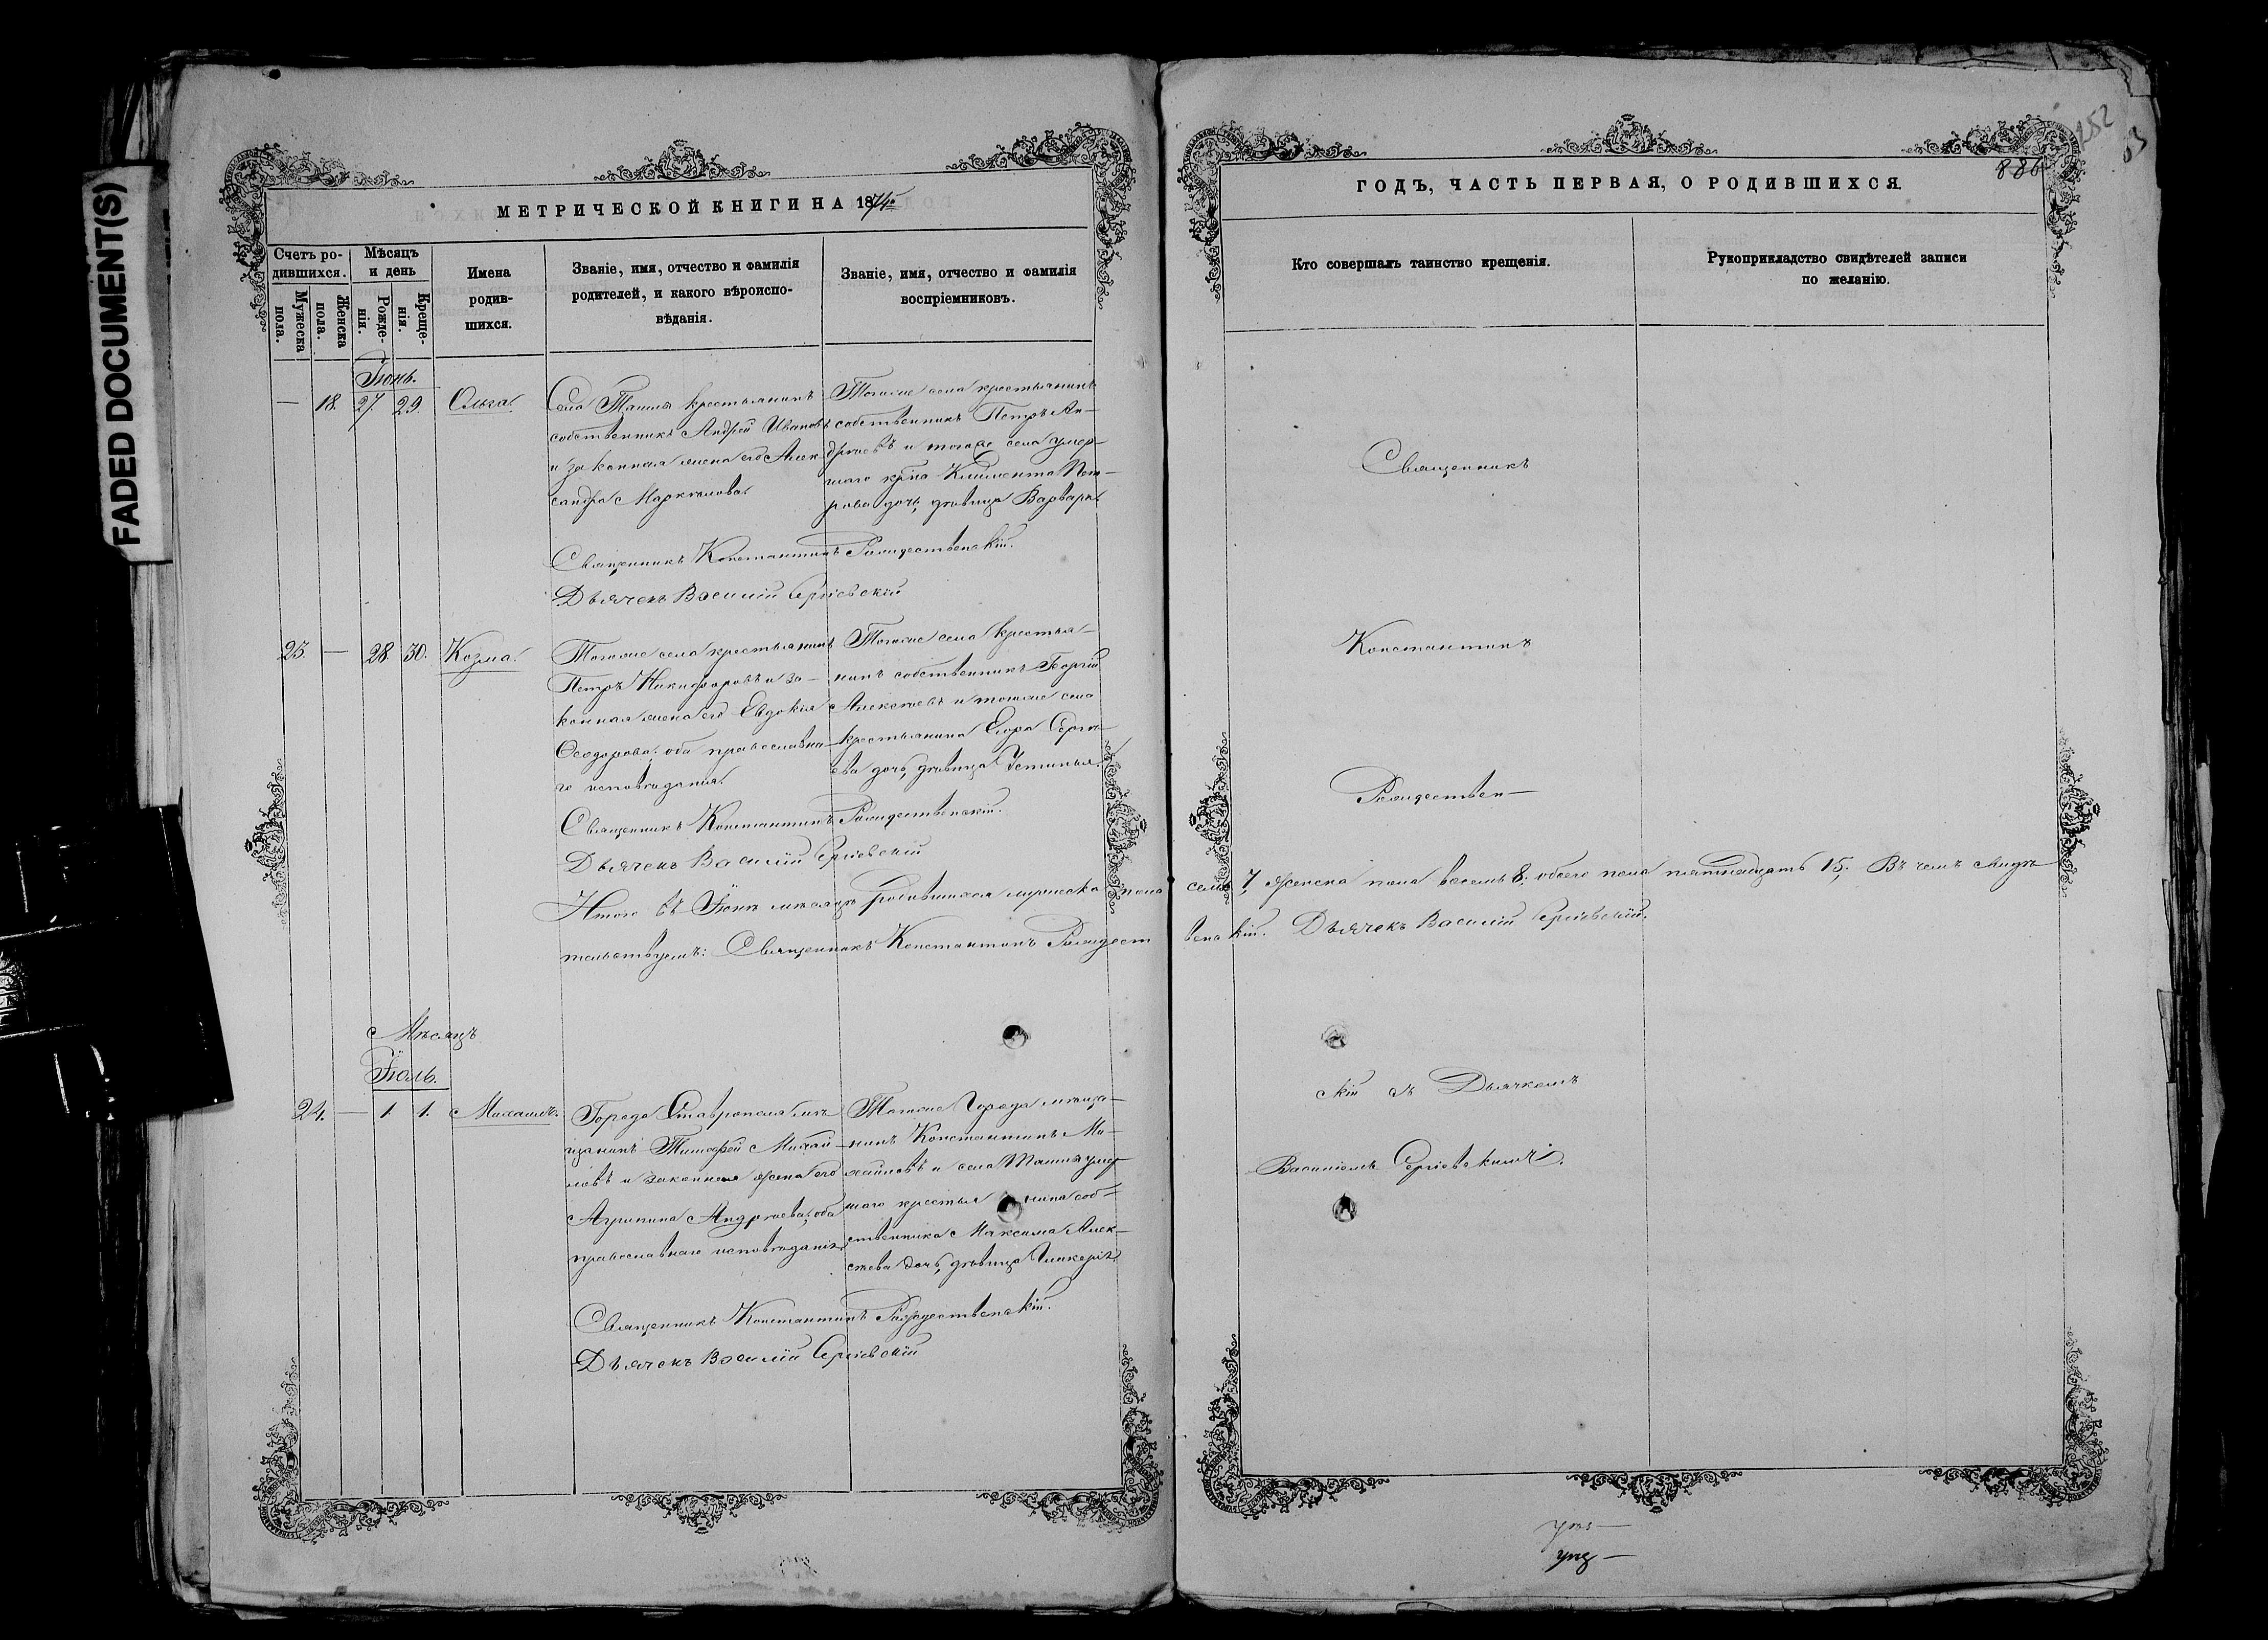 FADED DOCUMENT(S)
МЕТРИЧЕСКОЙ КНИГИ НА 1874
Счетъ ро-
дившихся.
Мужеска
пола.
Женска
пола.
Мѣсяцъ
и день
Рожде-
нія.
Креще-
нія.
Имена
родив-
шихся.
Званіе, имя, отчество и фамилія
родителей, и какого вѣроиспо-
вѣданія.
Званіе, имя, отчество и фамилія
воспріемниковъ.
Іюнь.
— 18. 27. 29. Ольга.
Села Ташля крестьянинъ
собственникъ Андрей Ивановъ
и законная жена его Алек-
сандра Маркелова
Тогоже села крестьянинъ
собственникъ Петръ Ан-
дреевъ и тогоже села умер-
шаго кр-на Климента Пет-
рова дочь, дѣвица Варвара
Священникъ Константинъ Рождественскій.
Дьячекъ Василій Сергіевскій
23. — 28. 30. Козма.
Тогоже села крестьянинъ
Петръ Никифоровъ и за-
конная жена его Евдокія
Ѳеодорова, оба православна-
го исповѣданія.
Тогоже села крестья-
нинъ собственникъ Георгій
Алексѣевъ и тогоже села
крестьянина Егора Сергѣ-
ева дочь, дѣвица Устинья.
Священникъ Константинъ Рождественскій.
Дьячекъ Василій Сергіевскій
Итого въ Іюнѣ мѣсяцѣ родившихся мужеска пола семь 7, женска пола восемь 8, обоего пола пятнадцать 15, Въ чемъ свидѣ-
тельствуемъ: Священникъ Константинъ Рождественскій. Дьячекъ Василій Сергіевскій.
Мѣсяцъ
Іюль.
24. — 1. 1. Михаилъ.
Города Ставрополя мѣ-
щанинъ Тимофей Михай-
ловъ и законная жена его
Агрипина Андреева, оба
православнаго исповѣданія
Тогоже Города мѣща-
нинъ Константинъ Ми-
хайловъ и села Ташля умер-
шаго крестьянина соб-
ственника Максима Алек-
сѣева дочь, дѣвица Гликерія
Священникъ Константинъ Рождественскій.
Дьячекъ Василій Сергіевскій
ГОДЪ, ЧАСТЬ ПЕРВАЯ, О РОДИВШИХСЯ.
886
252
Кто совершалъ таинство крещенія.
Рукоприкладство свидѣтелей записи
по желанію.
Священникъ
Константинъ
Рождествен-
скій съ Дьячкомъ
Василіемъ Сергіевскимъ.